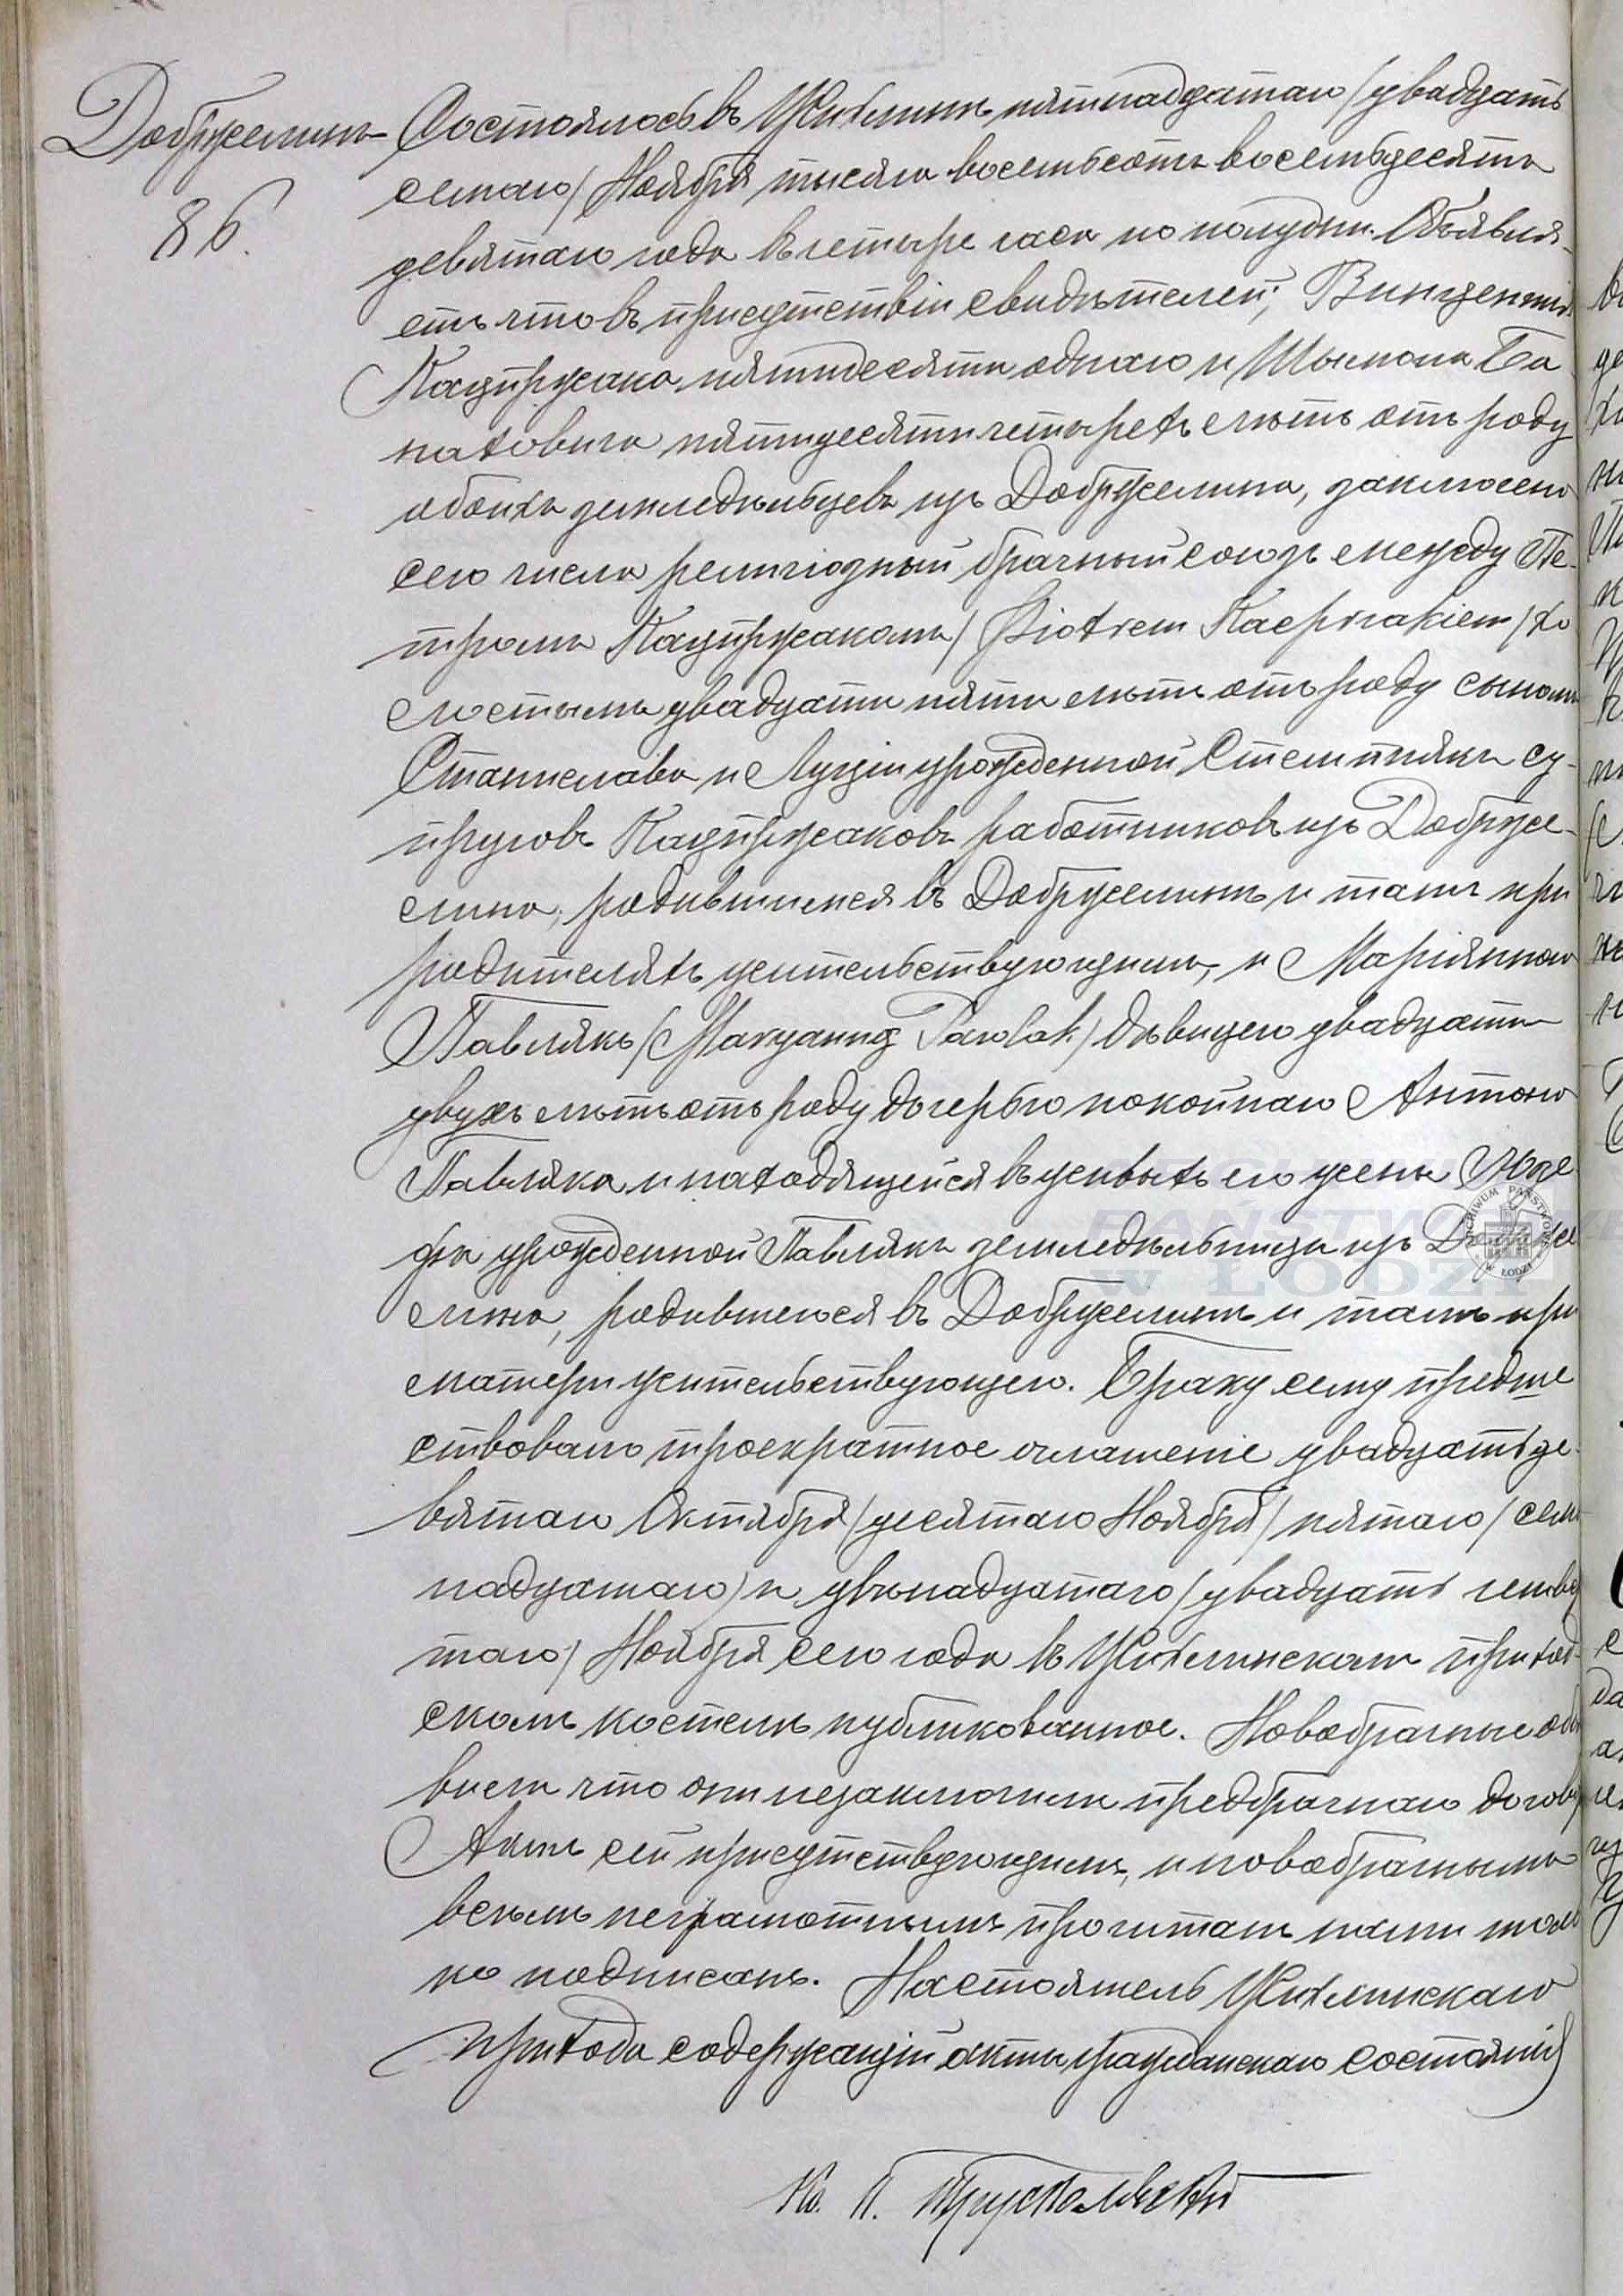 Добржелинъ
86.
Состоялось въ Жихлинѣ пятнадцатаго /двадцать
седьмаго/ Ноября тысяча восемьсотъ восемьдесятъ
девятаго года въ четыре часа по полудни. Объявля-
емъ что въ присутствіи свидѣтелей, Винцентія
Кацпржака пятидесяти одного и Шымона Ба
наховича пятидесяти четырехъ лѣтъ отъ роду
обоихъ земледѣльцевъ изъ Добржелина, заключенъ
сего числа религіозный брачный союзъ между Пе-
тромъ Кацпржакомъ / Piotrem Kacprzakiem / хо
лостымъ двадцати пяти лѣтъ отъ роду сыномъ
Станислава и Луціи урожденной Стемпнякъ су-
пруговъ Кацпржаковъ работниковъ изъ Добрже-
лина, родившимся въ Добржелинѣ и тамъ при
родителяхъ жительствующимъ, и Маріянною
Павлякъ /Maryanną Pawlak/ дѣвицею двадцати
двухъ лѣтъ отъ роду дочерью покойнаго Антона
Павляка и находящейся въ живыхъ его жены Юзе
фы урожденной Павлякъ земледѣльницы изъ Добрже
лина, родившеюся въ Добржелинѣ и тамъ при
матери жительствующею. Браку сему предше
ствовало троекратное оглашеніе двадцать де-
вятаго Октября /десятаго Ноября/ пятаго /сем
надцатаго/ и двѣнадцатаго /двадцать четвер
таго/ Ноября сего года въ Жихлинскомъ приход-
скомъ костелѣ публикованное. Новобрачные объя
вили что они незаключили предбрачнаго догов
Актъ сей присутствующимъ, и новобрачнымъ
всѣмъ неграмотнымъ прочитанъ нами толь
ко подписанъ. Настоятель Жихлинскаго
прихода содержащій акты гражданскаго состоянія
Кс. П. Трускольскій
ARCHIWUM PAŃSTWOWE
W ŁODZI